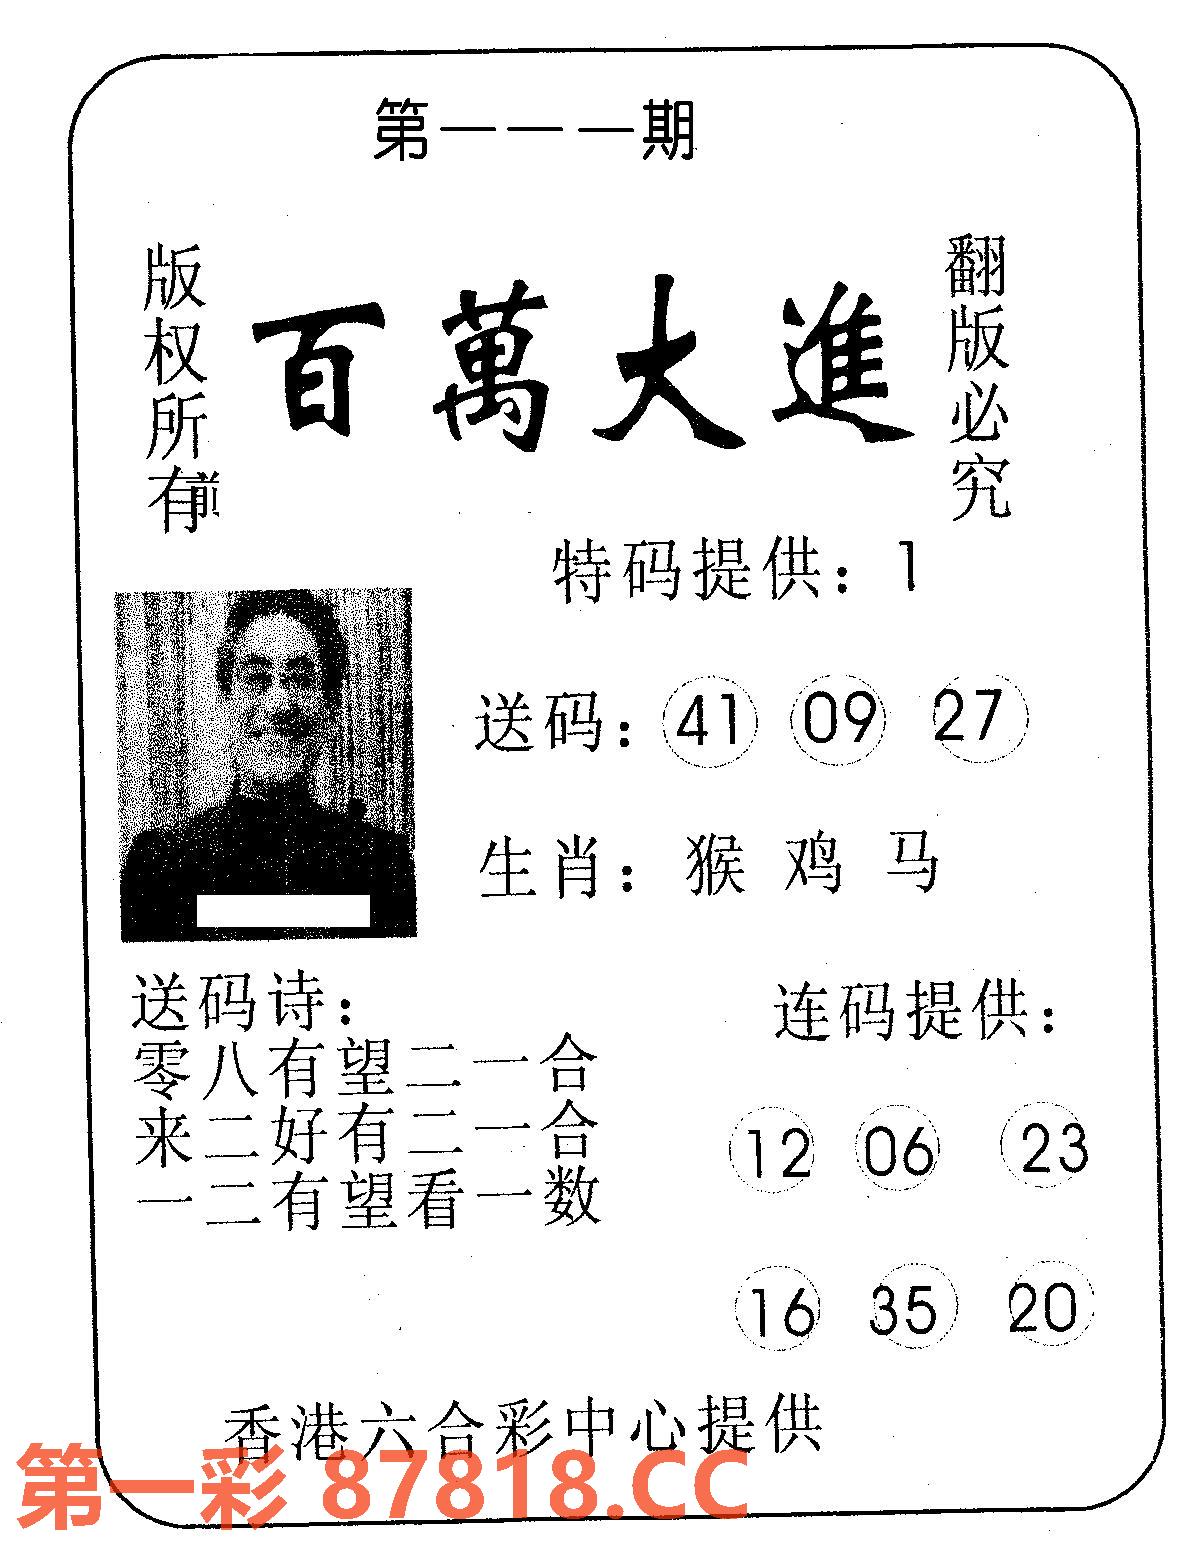 第一一一期
版权所有
翻版必究
百萬大進
特码提供：1
送码：41 09 27
生肖：猴 鸡 马
送码诗：
零八有望二一合
来二好有二一合
一二有望看一数
连码提供：
12 06 23
16 35 20
香港六合彩中心提供
第一彩 87818.CC